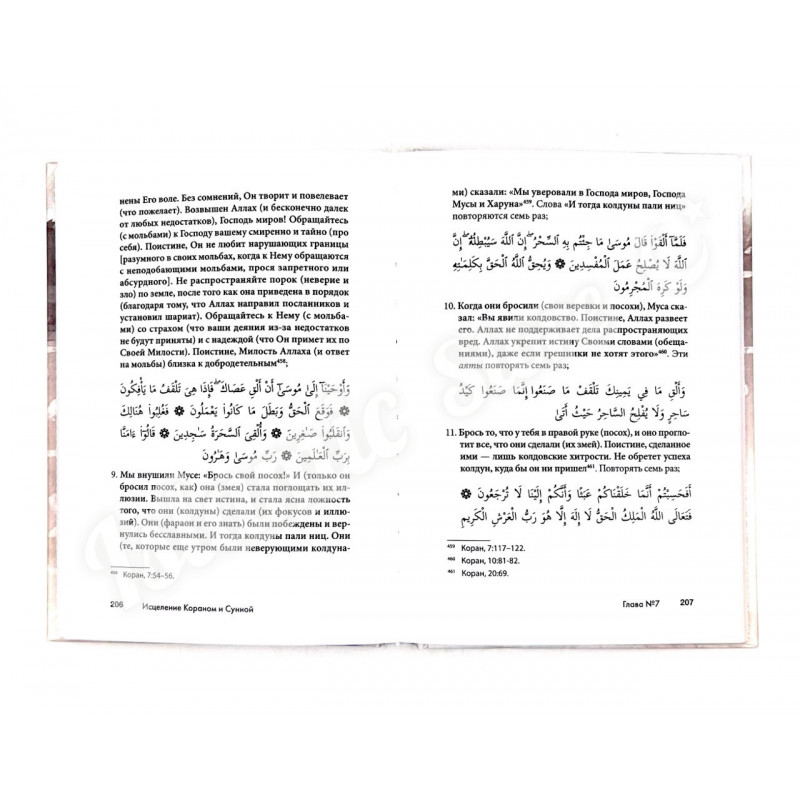 нены Его воле. Без сомнений, Он творит и повелевает
(что пожелает). Возвышен Аллах (и бесконечно далек
от любых недостатков), Господь миров! Обращайтесь
(с мольбами) к Господу вашему смиренно и тайно (про
себя). Поистине, Он не любит нарушающих границы
[разумного в своих мольбах, когда к Нему обращаются
с неподобающими мольбами, прося запретного или
абсурдного]. Не распространяйте порок (неверие и
зло) по земле, после того как она приведена в порядок
(благодаря тому, что Аллах направил посланников и
установил шариат). Обращайтесь к Нему (с мольба-
ми) со страхом (что ваши деяния из-за недостатков не
будут приняты) и с надеждой (что Он примет их по
Своей Милости). Поистине, Милость Аллаха (и ответ
на мольбы) близка к добродетельным⁴⁵⁸;
وَأَوْحَيْنَآ إِلَىٰ مُوسَىٰٓ أَنْ أَلْقِ عَصَاكَ ۖ فَإِذَا هِىَ تَلْقَفُ مَا يَأْفِكُونَ
۞ فَوَقَعَ ٱلْحَقُّ وَبَطَلَ مَا كَانُوا۟ يَعْمَلُونَ ۞ فَغُلِبُوا۟ هُنَالِكَ
وَٱنقَلَبُوا۟ صَٰغِرِينَ ۞ وَأُلْقِىَ ٱلسَّحَرَةُ سَٰجِدِينَ ۞ قَالُوٓا۟ ءَامَنَّا
بِرَبِّ ٱلْعَٰلَمِينَ ۞ رَبِّ مُوسَىٰ وَهَٰرُونَ
9. Мы внушили Мусе: «Брось свой посох!» И (только он
бросил посох, как) она (змея) стала поглощать их ил-
люзии. Вышла на свет истина, и стала ясна ложность
того, что они (колдуны) сделали (их фокусов и иллю-
зий). Они (фараон и его знать) были побеждены и вер-
нулись бесславными. И тогда колдуны пали ниц. Они
(те, которые еще утром были неверующими колдуна-
458 Коран, 7:54–56.
206 Исцеление Кораном и Сунной
ми) сказали: «Мы уверовали в Господа миров, Господа
Мусы и Харуна»⁴⁵⁹. Слова «И тогда колдуны пали ниц»
повторяются семь раз;
فَلَمَّآ أَلْقَوْا۟ قَالَ مُوسَىٰ مَا جِئْتُم بِهِ ٱلسِّحْرُ ۖ إِنَّ ٱللَّهَ سَيُبْطِلُهُۥٓ ۖ إِنَّ
ٱللَّهَ لَا يُصْلِحُ عَمَلَ ٱلْمُفْسِدِينَ ۞ وَيُحِقُّ ٱللَّهُ ٱلْحَقَّ بِكَلِمَٰتِهِۦ
وَلَوْ كَرِهَ ٱلْمُجْرِمُونَ
10. Когда они бросили (свои веревки и посохи), Муса ска-
зал: «Вы явили колдовство. Поистине, Аллах развеет
его. Аллах не поддерживает дела распространяющих
вред. Аллах укрепит истину Своими словами (обеща-
ниями), даже если грешники не хотят этого»⁴⁶⁰. Эти
аяты повторять семь раз;
وَأَلْقِ مَا فِي يَمِينِكَ تَلْقَفْ مَا صَنَعُوا إِنَّمَا صَنَعُوا كَيْدُ
سَاحِرٍ وَلَا يُفْلِحُ السَّاحِرُ حَيْثُ أَتَىٰ
11. Брось то, что у тебя в правой руке (посох), и оно прогло-
тит все, что они сделали (их змей). Поистине, сделанное
ими — лишь колдовские хитрости. Не обретет успеха
колдун, куда бы он ни пришел⁴⁶¹. Повторять семь раз;
أَفَحَسِبْتُمْ أَنَّمَا خَلَقْنَاكُمْ عَبَثًا وَأَنَّكُمْ إِلَيْنَا لَا تُرْجَعُونَ ۞
فَتَعَالَى اللَّهُ الْمَلِكُ الْحَقُّ لَا إِلَهَ إِلَّا هُوَ رَبُّ الْعَرْشِ الْكَرِيمِ
459 Коран, 7:117–122.
460 Коран, 10:81-82.
461 Коран, 20:69.
Глава №7 207